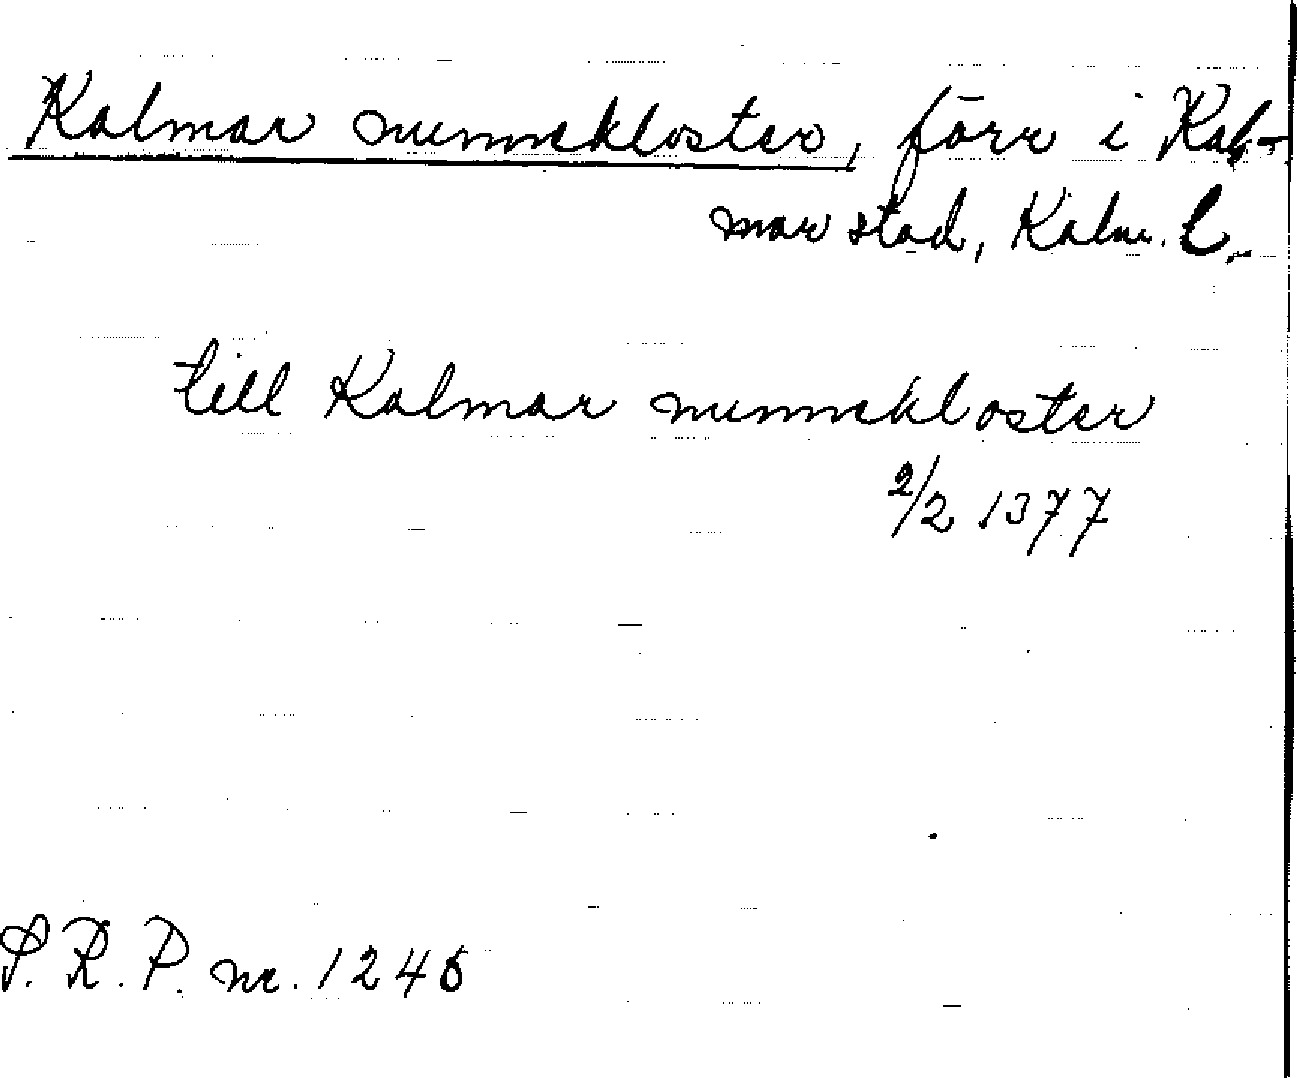 Kalmar nunnekloster, förr i Kal-
mar stad, Kalm. l.
till Kalmar nunnekloster
2/2 1377
S. R. P. nr. 1246